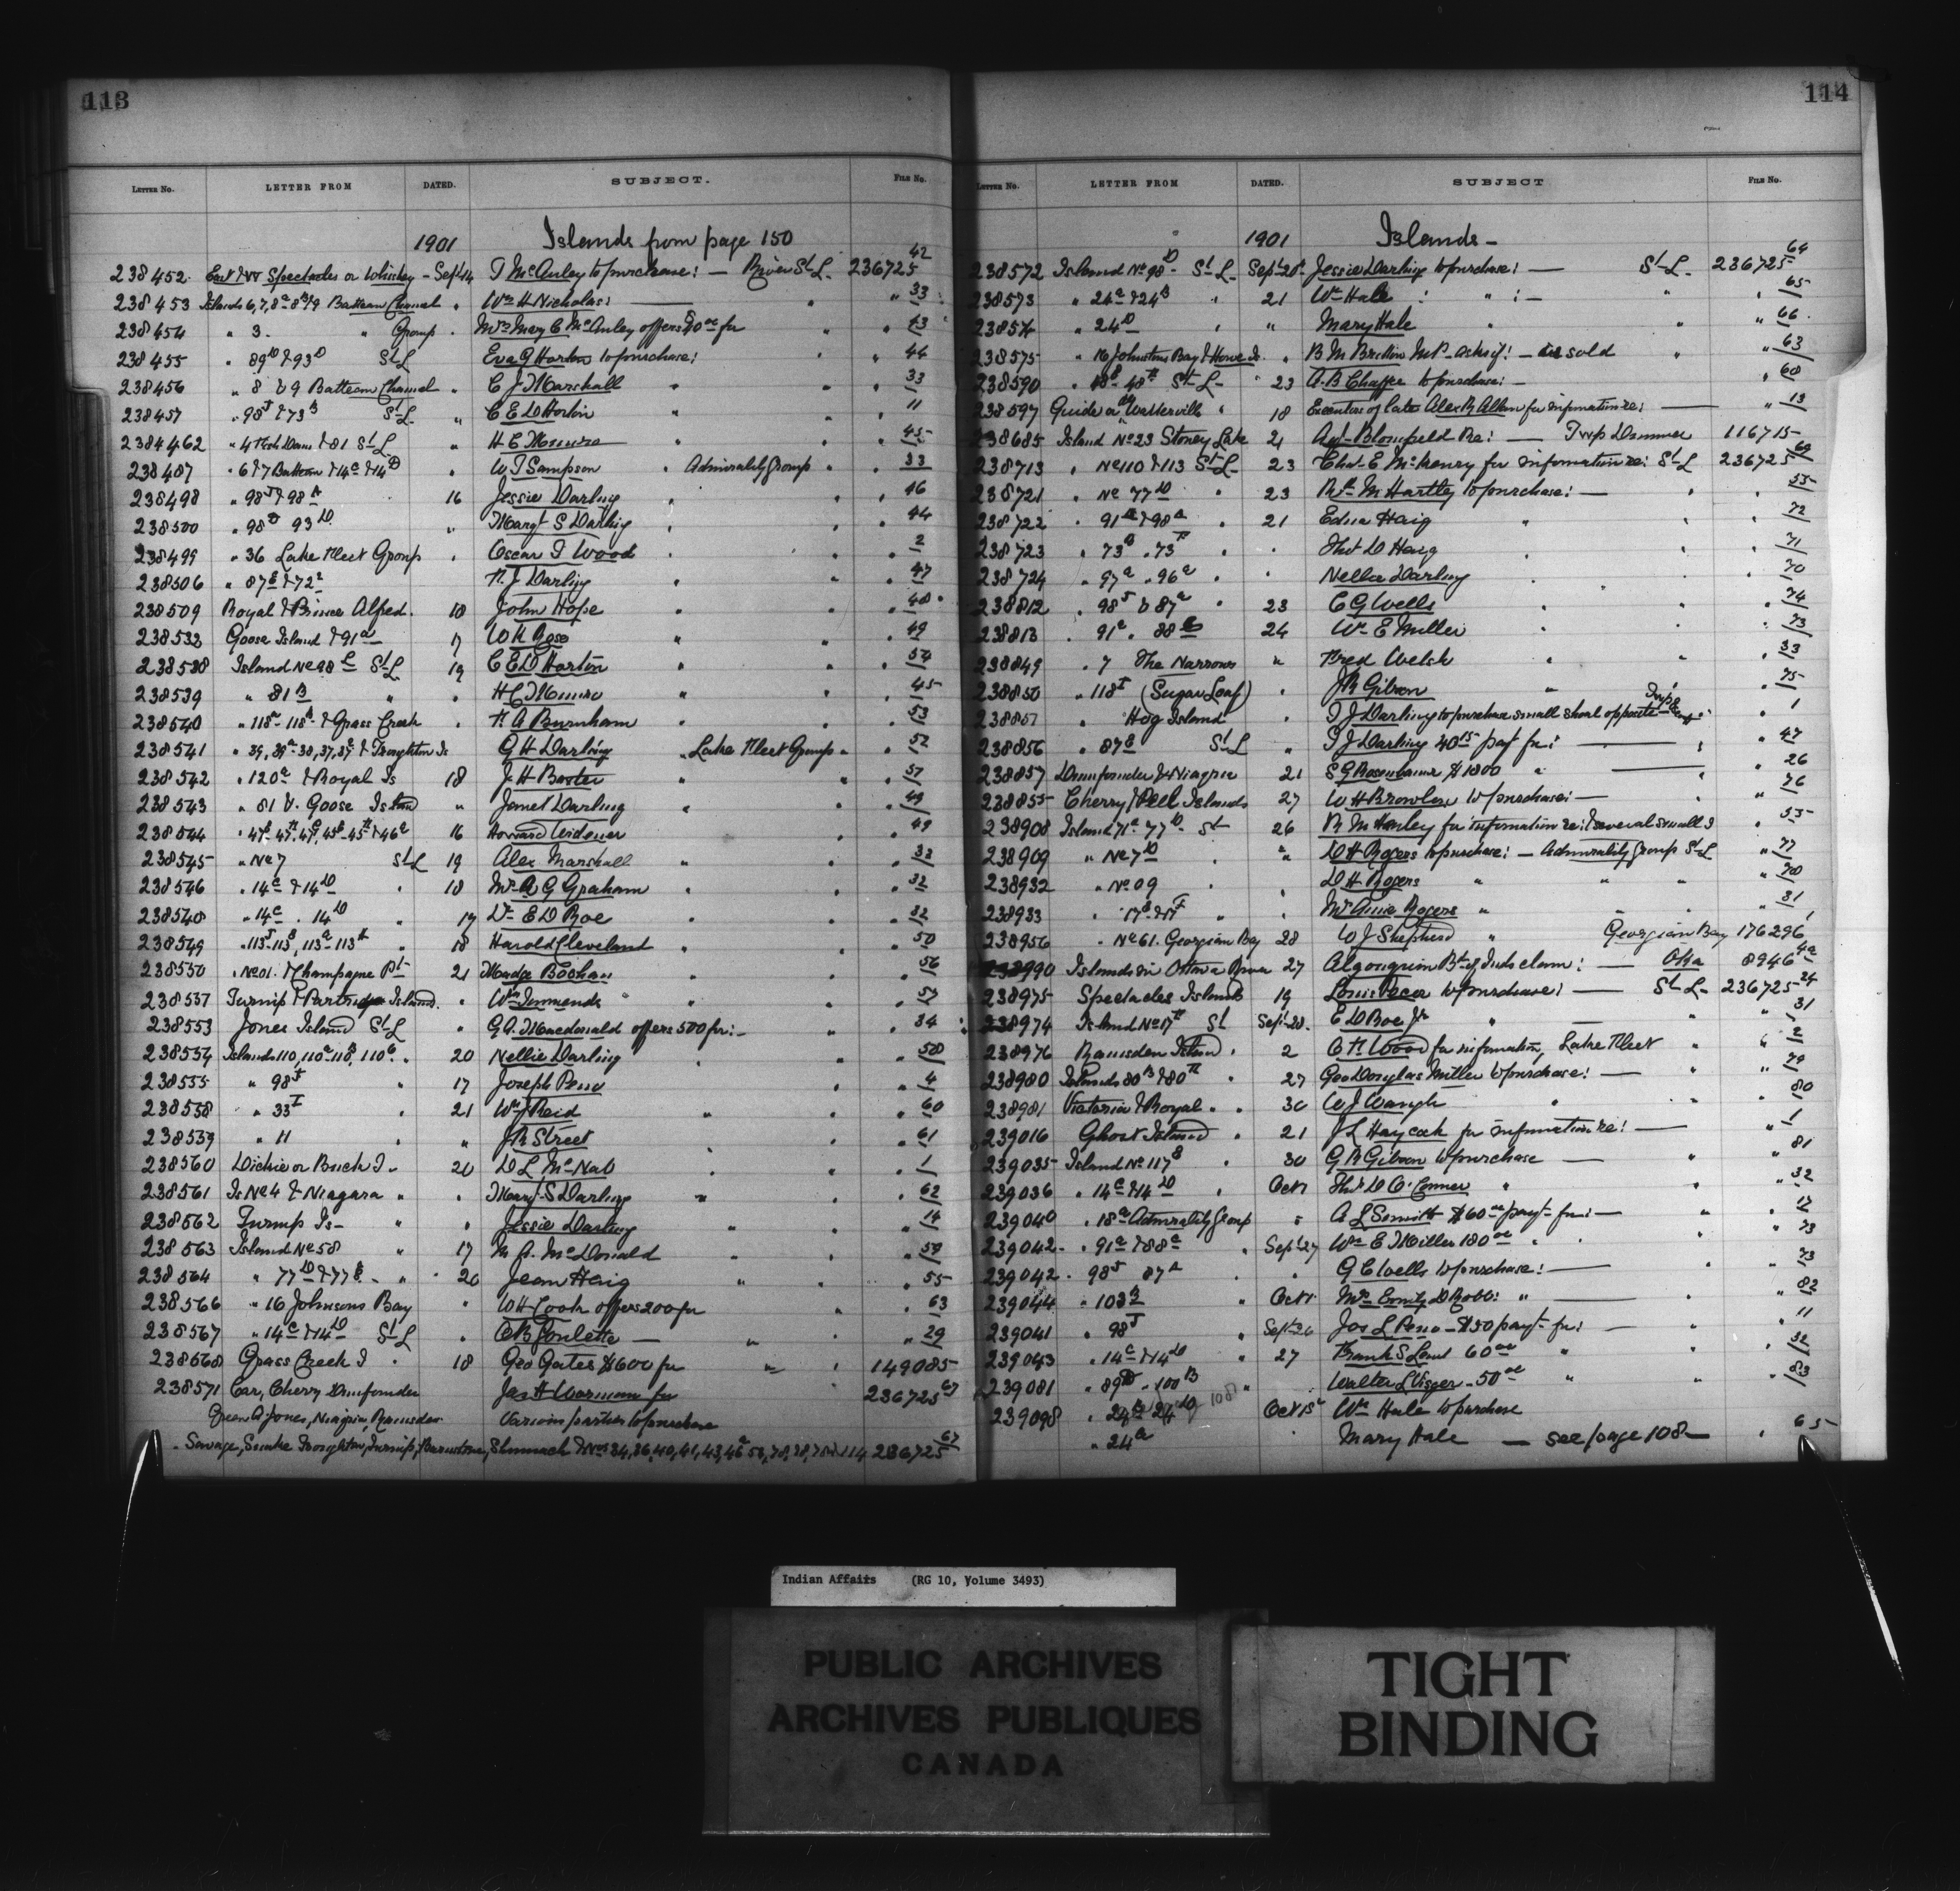 113
LETTER NO. LETTER FROM DATED. SUBJECT. FILE NO.
1901 Islands from page 150
238452 East & W Spectacles or Whiskey - Sept 14 T McAuley to purchase: — River St L. 236725 42
238453 Islands 6,7,8a 8b & 9 Batteau Channel " Wm H Nicholas: — " " 33
238454 " 3. " Group " Mrs Mary C McAuley offers $90 00 for " " 43
238455 " 89D & 93D St L Eva G Horton to purchase: " " 44
238456 " 8 & 9 Batteau Channel " C J Marshall " " " 33
238457 " 98J & 73B St L " C E D Horton " " " 11
2384462 " & 81 St L " H C Munro " " " 45
238487 " 6 & 7 Batteau & 14C & 14D " W T Sampson " Admiralty Group " " 33
238498 " 98J & 98A 16 Jessie Darling " " " 46
238500 " 98 93D " Margt S Darling " " " 44
238499 " 36 Lake Fleet Group " Oscar T Wood " " " 2
238506 " 87E & 72 F. J Darling " " " 47
238509 Royal & Prince Alfred. 18 John Hope " " " 48
238532 Goose Island & 91a 17 W H Rose " " " 49
238538 Island No 98 St L 19 C E D Horton " " " 54
238539 " 81B " H C Munro " " " 45
238540 " 118a 118b & Grass Creek " F. A Burnham " " " 53
238541 " & Troughton Is G H Darling " Lake Fleet Group " " 52
238542 " 120a & Royal Is 18 J. H Baxter " " " 51
238543 " 81 & Goose Island " Janet Darling " " " 49
238544 " 16 Howard Widener " " 49
238545 " No 7 St L 19 Alex Marshall " " " 32
238546 " 14C & 14D " 18 Mr A G Graham " " " 32
238548 " 14C " 14D " 17 Dr E D Roe " " " 32
238549 " " 18 Harold Cleveland " " " 50
238550 " No 81 & Champagne Pt 21 Madge " " " 56
238557 Turnip & Partridge Island. " Wm Timmonds " " " 57
238553 Jones Island St L " G A. Macdonald offers 500 for:- " " 34
238554 Islands 110, 110a 110b, 110c " 20 Nellie Darling " " 58
238555 " 98J " 17 Joseph Peno " " 4
238558 " 33I " 21 Wm J Reid " " " 60
238559 " 11 " " J R Street " " 61
238560 Dickie or Buck I " 20 D L McNab " " " 1
238561 Is No 4 & Niagara " " Margt S Darling " " " 62
238562 Turnip Is- " " Jessie Darling " " " 14
238563 Island No 58 " 17 M A. McDonald " " " 59
238564 " 77D & 77E " " 20 Jean Haig " " " 55
238566 " 16 Johnsons Bay " W H Cook offers 200 for " " 63
238567 " 14C & 14D St L " C B Goulette — " " 29
238568 Grass Creek I " 18 Geo Gates $1600 for " " 149085
238571 Car, Cherry Drumfounder Jas H Worman for 236725 67
Green A. Jones, Niagara, Ramsden Various parties to purchase
Savage, Snake Troughton, Turnip, & Nos 34, 36, 40, 41, 43, 236725 67
114
LETTER NO. LETTER FROM DATED. SUBJECT FILE NO.
1901 Islands -
238572 Island No 98D St L Sept 20 Jessie Darling to purchase: — St L 236725 64
238573 " 24a & 24B " 21 Wm Hale : " :- " " 65
23857 " 24D " " Mary Hale " " " 66
238575 " 16 Johnstons Bay & Howe Is. " B M Britton M.P. asks if: — is sold " " 63
238590 " 48 48 St L - " 23 A. B Chaffee to purchase: - " 68
238597 Guide or Watterville " 18 Executors of late Alex R Allan for information re: — " 13
238685 Island No 23 Stoney Lake 21 Blomfield Re: — Twp Dummer 116715
238713 " No 110 & 113 St L 23 Chas E McKenny for information re: St L 236725 69
238721 " No 77D " 23 Rt M Hartley to purchase: — " " 55
238722 " 91 & 98a " 21 Edna Haig " " " 72
238723 " 73 " 73F " " Thos D Haig " " 71
238724 " 97a " 96a " " Nellie Darling " " 70
238812 " 98J & 87a " 23 C G Wells " " " 74
238813 " 91a " 88 24 Wm E Miller " " " 73
238849 " 7 The Narrows " Fred Welsh " " " 33
238850 " 118I (Sugar Loaf) " J R Gibson " " " 75
238851 " Hog Island " T J Darling to purchase small shoal opposite " 1
238856 " 87B St L " T J Darling 40 15 payt for: — " " 47
238857 Drumfounder & Niagara 21 S G Rosenbaum $1800 " — " " 26
238855 Cherry & Pell Islands 27 W H Browlow to purchase: — " " 76
238908 Island 71a 77D St 26 R M Hanley for information re: several small I " 55
238909 " No 7D " " D H Rogers to purchase: — Admiralty Group St L " 77
238932 " No 09 " " D H Rogers " " " " 78
238933 " 17E & 17F " " Mr Annie Rogers " " " 31
238956 " No 61. Georgian Bay 28 W J Shepherd " Georgian Bay 176296 1
238990 Islands in Ottawa River 27 Algonquin Bd of Inds claim: — Oka 8946 4a
238975 Spectacles Islands 19 Louis Pecor to purchase: — St L 236725 24
238974 Island No 17 St Sept 28. E D Roe Jr " — " " 31
238976 Ramsden Island " 2 O F. Wood for information, Lake Fleet " " 2
238980 Islands 80B & 80 " 27 Geo Douglas Miller to purchase: — " " 79
238981 Victoria & Royal " " 30 W J Waugh " " " 80
239016 Ghost Island " 21 J L Haycock for information re: — " " 1
239035 Island No 117B 30 G R Gibson to purchase — " " 81
239036 " 14C & 14D " Oct 1 Thos D O'Connor " " " 32
239040 " 18a Admiralty Group " A L Smith $60 00 payt for: — " " 17
239042 " 91a & 88a " Sept 27 Wm E Miller 180 00 " " " 73
239042 " 98J 87a " G C Wells to purchase: — " 73
239044 " 103B " Oct 1 Mrs Emily D Robb: " — " " 82
239041 " 98J " Sept 26 Jos L Peno - $50 payt for: — " " 11
239043 " 14C & 14D " 27 Frank S 60 00 " " " 32
239081 " 89D " 100B " Walter L Visger - 50 00 " " " 83
239098 " 24B 24D 108 Oct 15 Wm Hale to purchase
" 24a " Mary Hale — see page 108 — " 65
Indian Affairs (RG 10, Volume 3493)
PUBLIC ARCHIVES
ARCHIVES PUBLIQUES
CANADA
TIGHT
BINDING